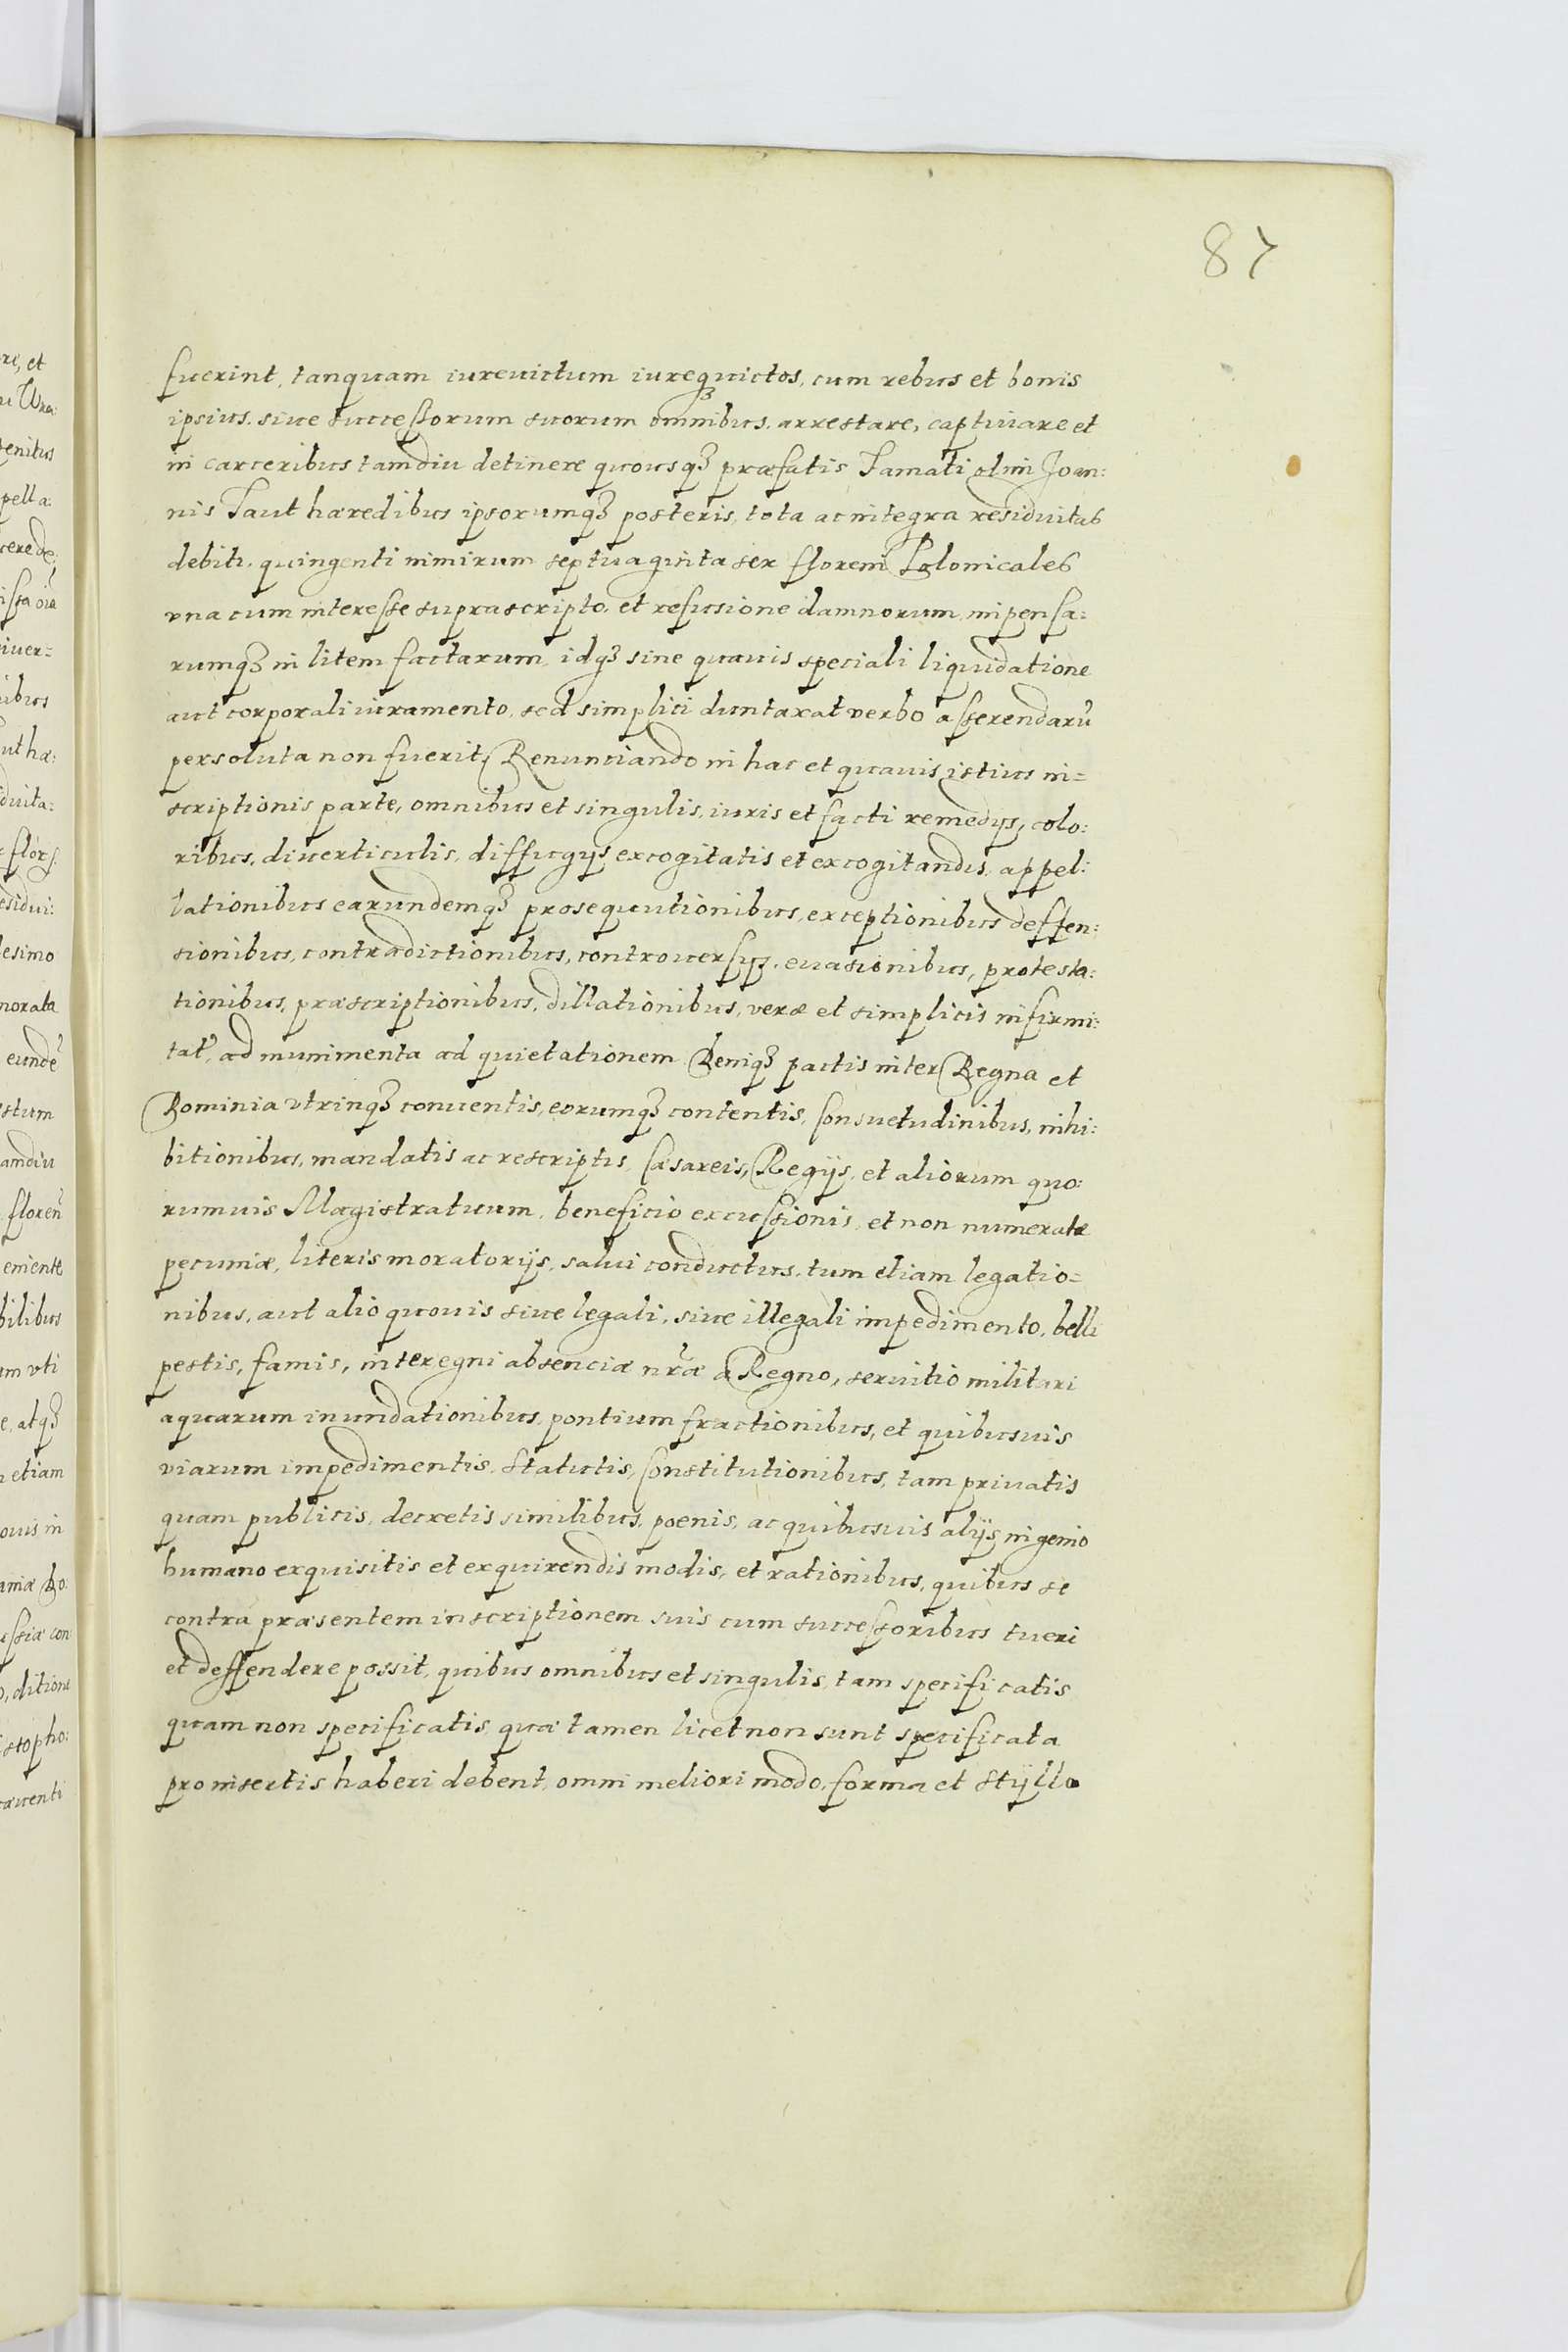 87
fuerint, tanquam iurevictum iureq₃ victos, cum rebus et bonis
ipsius. siue successorum suorum omnibus. arrestare, captiuare et
in carceribus tamdiu detinere quousq₃ præfatis Famati olim Joan:
nis Taut hæredibus ipsorumq₃ posteris, tota ac integra residuitas
debiti. quingenti nimirum septuaginta sex floreni Polonicales
vna cum interesse suprascripto. et refusione damnorum, inpensa:
rumq₃ in litem factarum, idq₃ sine quauis speciali liquidatione
aut corporali iuramento. sed simplici duntaxat verbo asserendarũ
persoluta non fuerit, Renunciando in hac et quauis istius in=
scriptionis parte, omnibus et singulis, iuris et facti remedys, colo:
ribus, diuerticulis, diffugys excogitatis et excogitandis, appel:
lationibus earundemq₃ prosequutionibus, exceptionibus deffen:
sionibus, contradictionibus, controuersys, euasionibus, protesta:
tionibus, præscriptionibus, dillationibus, veræ et simplicis infirmi:
tat, ad munimenta ad quietationem Deniq₃ pactis inter Regna et
Dominia vtrinq₃ conuentis, eorumq₃ contentis, Consuetudinibus, inhi:
bitionibus, mandatis ac rescriptis, Cæsareis, Regijs, et aliorum quo:
rumuis Magistratuum, beneficio excussionis, et non numeratæ
pecuniæ, literis moratorijs, salui conductus, tum etiam legatio=
nibus, aut alio quouis siue legali, siue illegali impedimento, belli
pestis, famis, interegni absenciæ nr̃æ a Regno, seruitio militari
aquarum inundationibus, pontium fractionibus, et quibusuis
viarum impedimentis, Statutis, Constitutionibus, tam priuatis
quam publicis, decretis similibus, poenis, ac quibusuis alijs ingenio
humano exquisitis et exquirendis modis, et rationibus, quibus se
contra præsentem inscriptionem suis cum successoribus tueri
et deffendere possit, quibus omnibus et singulis, tam specificatis
quam non specificatis, quæ tamen licet non sunt specificata
pro insertis haberi debent, omni meliori modo, forma et Styllo